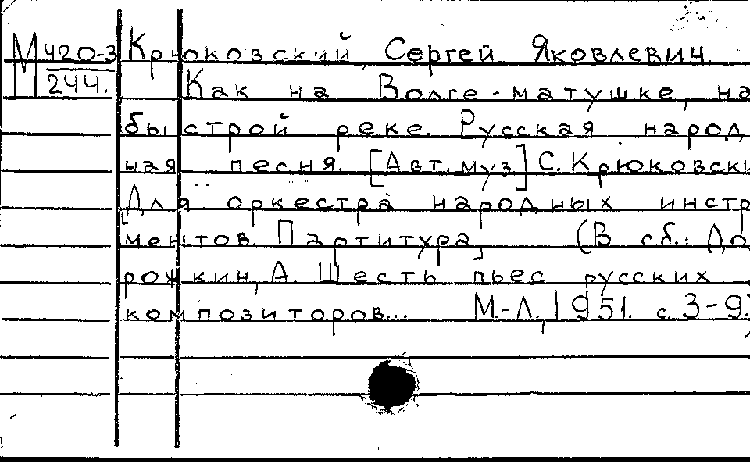 М 420-3 Крюковский, Сергей Яковлевич.
244. Как на Волге-матушке, на
быстрой реке. Русская народ
ная песня. [Авт. муз] С. Крюковски
[Для оркестра народных инстр
ментов. Партитура] (В сб.: До
рожкин, А. Шесть пьес русских
композиторов... М-Л, 1951. с. 3-9.)